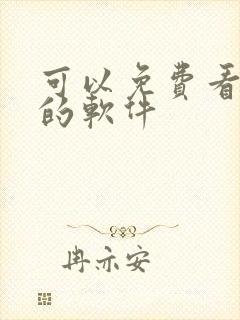 可以免費看
的軟件
冉亦安